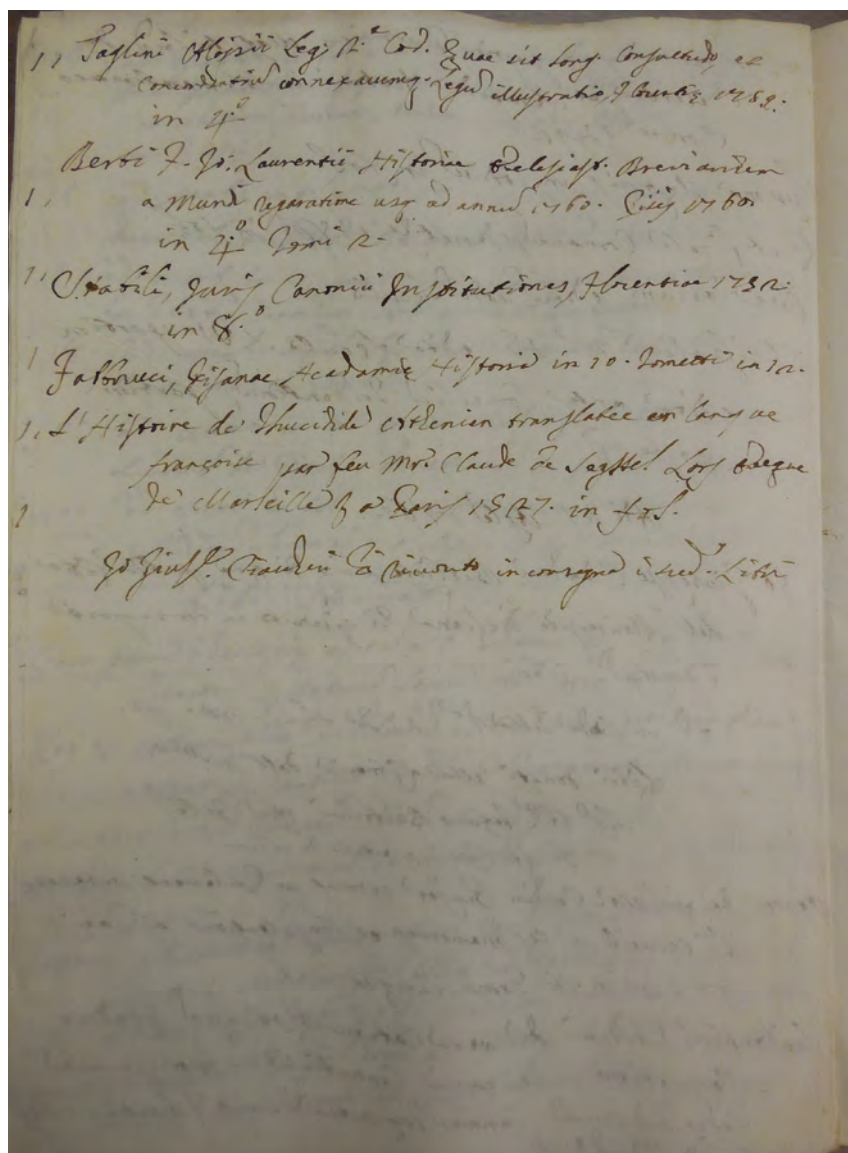 1, Paglini Aloysii Leg. 2.ª Cod. Quae sit Long. Consuetudo, et
Concordantium connexarumq. Legum illustratio, Florentiae 1782.
in 4.º
Berti F. Jo. Laurentii Historiae Ecclesiast. Breviarium
1, a Mundi reparatione usq. ad annum 1760. Pisis 1760.
in 4.º Tomi 2.
1, Stabili, Juris Canonici Institutiones, Florentiae 1732.
in 8.º
1 Fabbrucci, Pisanae Academiae Historia in 10. Tometti in 12.
1, L'Histoire de Thucidide Athenien translatée en langue
françoise par feu Mr. Claude de Seyssel Lors Evêque
de Marseille, a Paris 1527. in fol.
1
Io Gius.e ho ricevuto in consegna i sud.i Libri